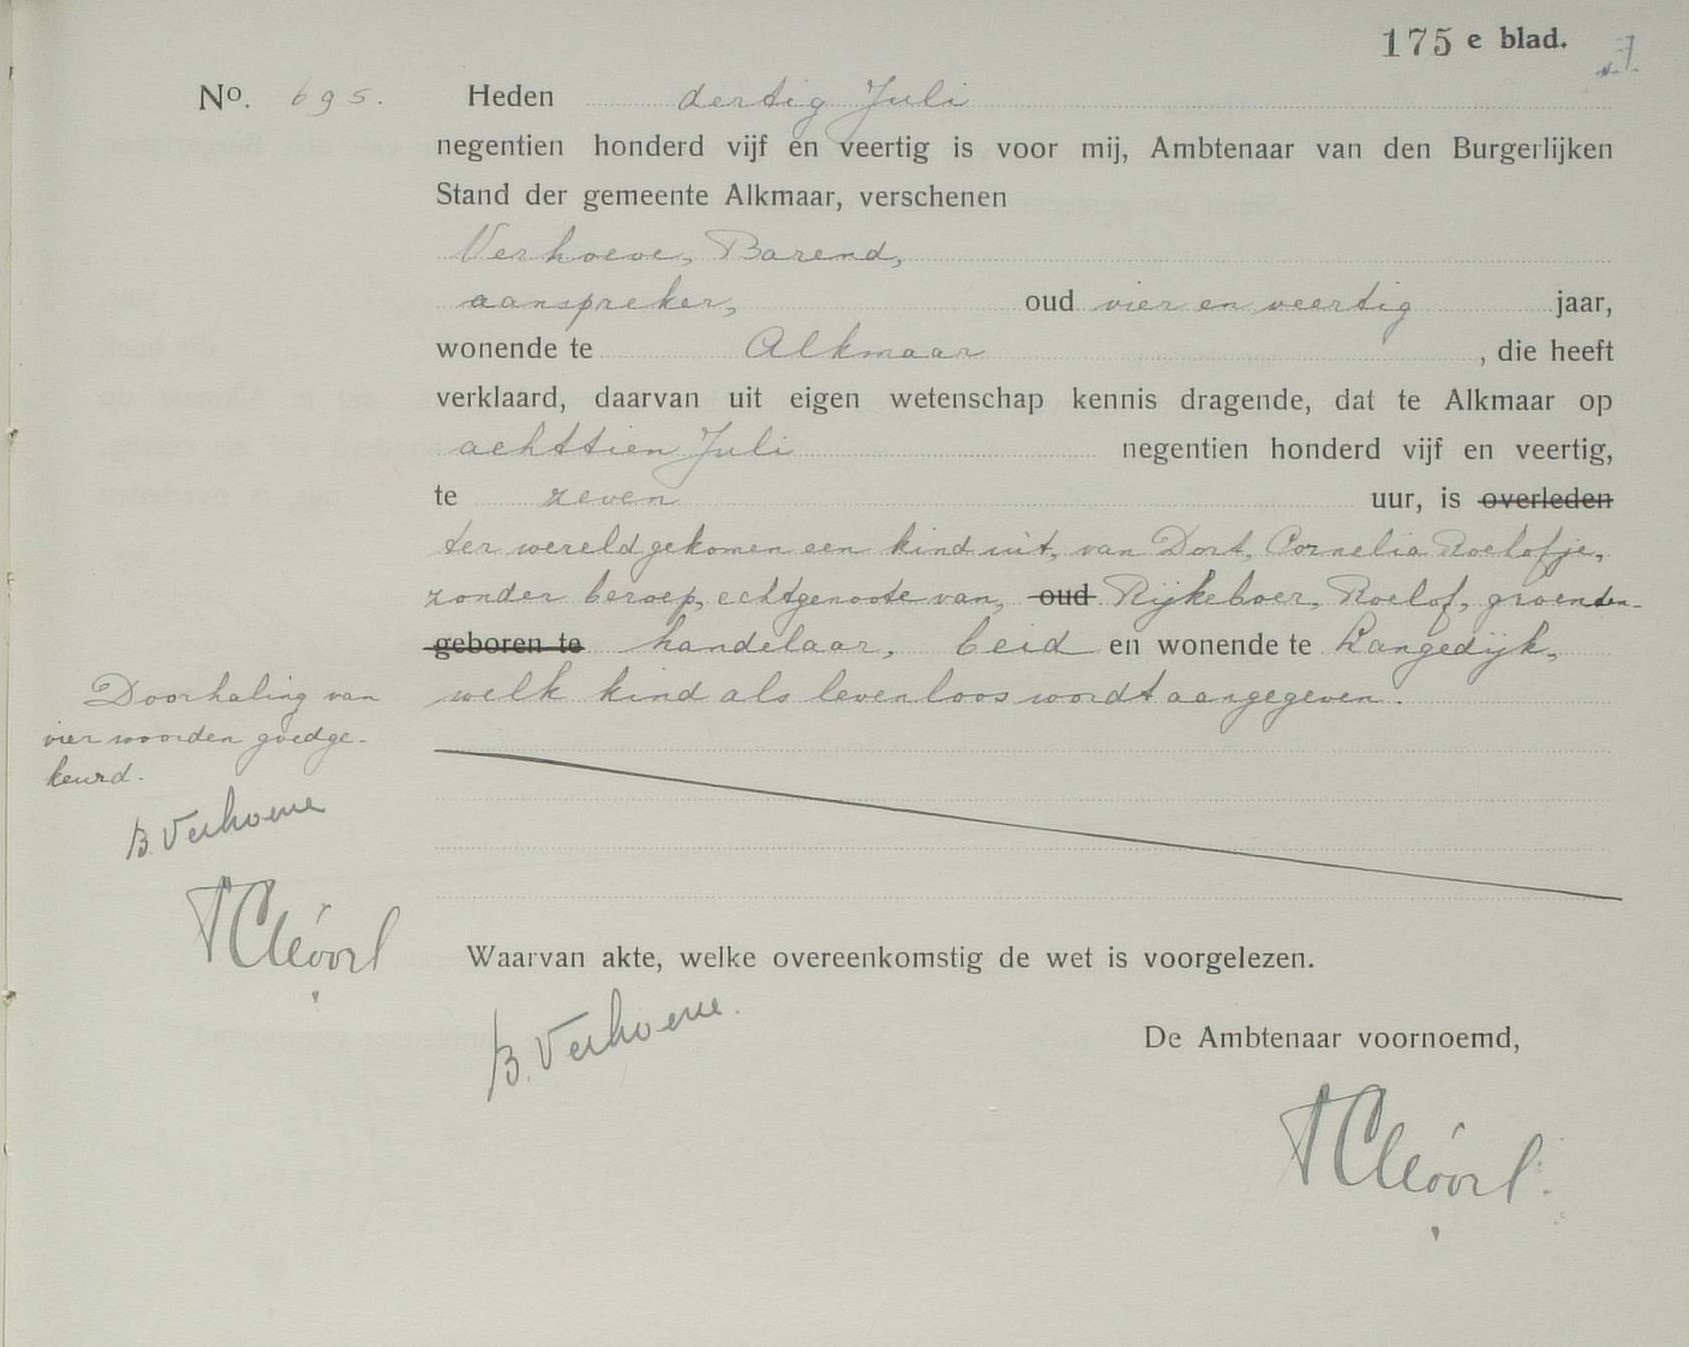 175 e blad.
No. 695. Heden dertig Juli
negentien honderd vijf en veertig is voor mij, Ambtenaar van den Burgerlijken
Stand der gemeente Alkmaar, verschenen
Verhoeve, Barend,
aanspreker, oud vier en veertig jaar,
wonende te Alkmaar, die heeft
verklaard, daarvan uit eigen wetenschap kennis dragende, dat te Alkmaar op
achttien Juli negentien honderd vijf en veertig,
te zeven uur, is overleden
ter wereld gekomen een kind uit, van Dort, Cornelia Roelofje,
zonder beroep, echtgenoote van, oud Rijkeboer, Roelof, groenten-
geboren te handelaar, beid en wonende te Langedijk,
welk kind als levenloos wordt aangegeven.
Doorhaling van
vier woorden goedge-
keurd.
B. Verhoeve
Waarvan akte, welke overeenkomstig de wet is voorgelezen.
B. Verhoeve.
De Ambtenaar voornoemd,